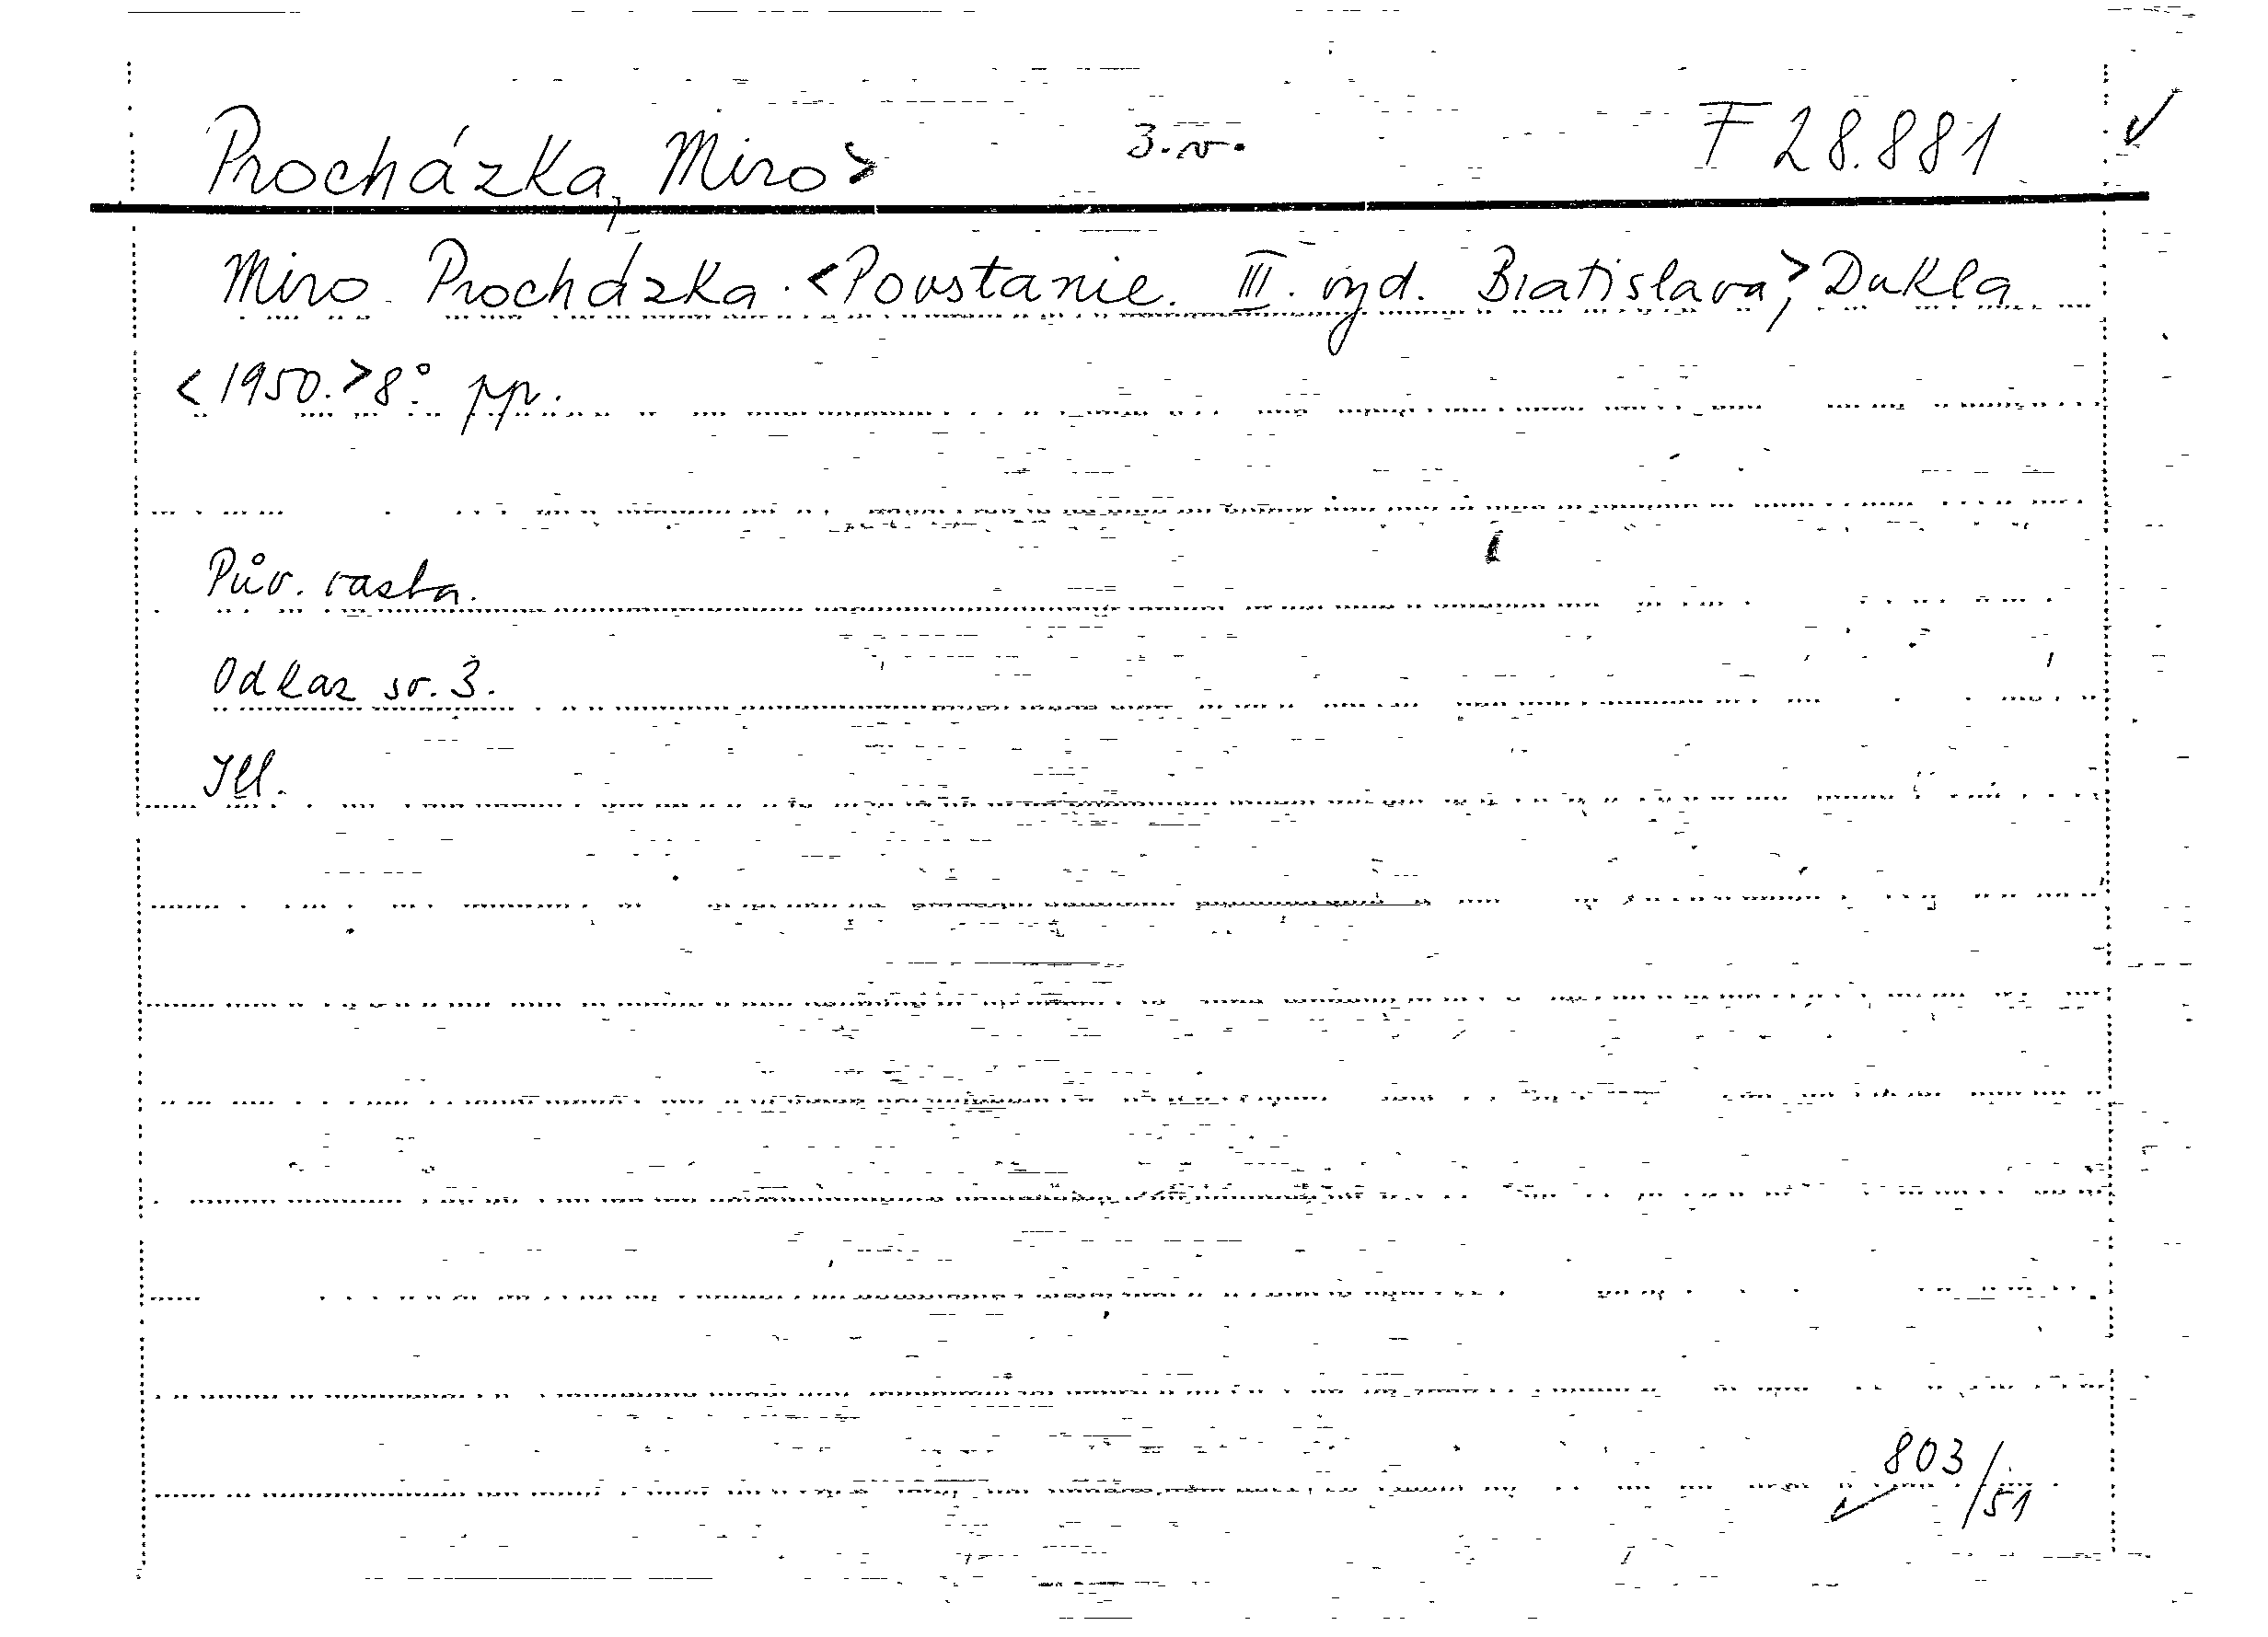 Procházka, Miro> 3.v. F 28.881
Miro Procházka. <Povstanie. III. vyd. Bratislava,> Dukla
<1950.> 8° pp.
Pův. vazba.
Odkaz sv. 3.
Ill.
803/51